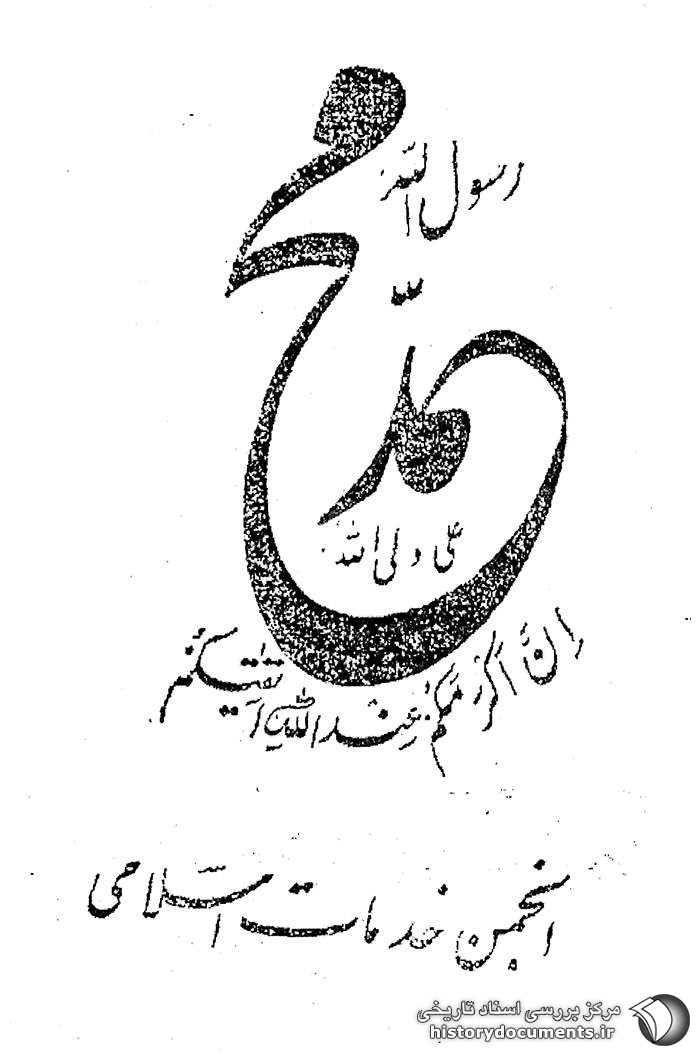 رسول الله
محمد
علی ولی الله
إِنَّ أَكْرَمَكُمْ عِنْدَ اللهِ أَتْقٰيكُمْ
انجمن خدمات اسلامی
مرکز بررسی اسناد تاریخی
historydocuments.ir